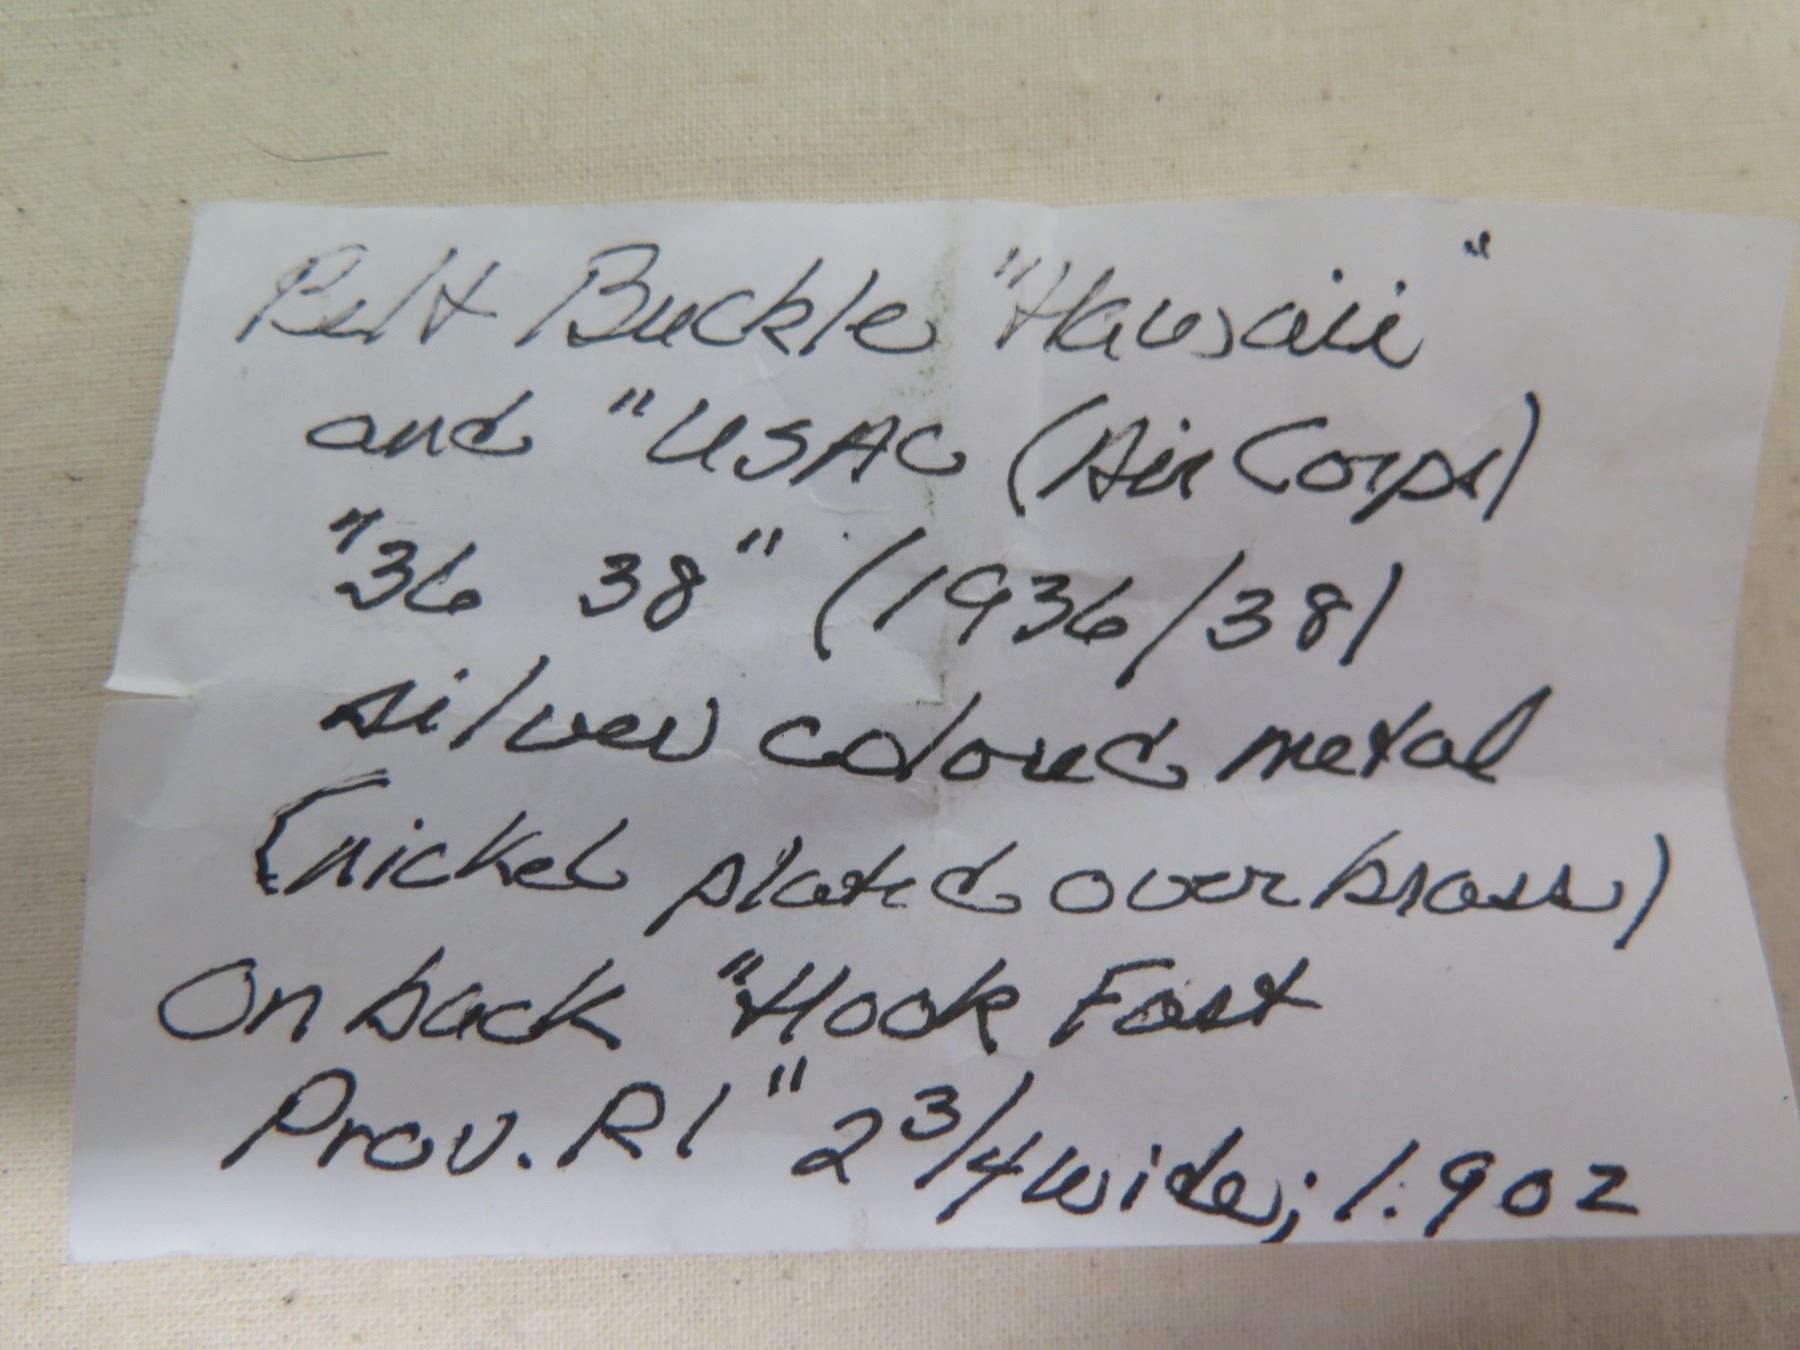 Belt Buckle "Hawaii"
and "USAC (Air Corps)
"36 38" (1936/38)
silver colored metal
(nickel plated over brass)
On back "Hook Fast
Prov. RI" 2 3/4 wide; 1.9 oz